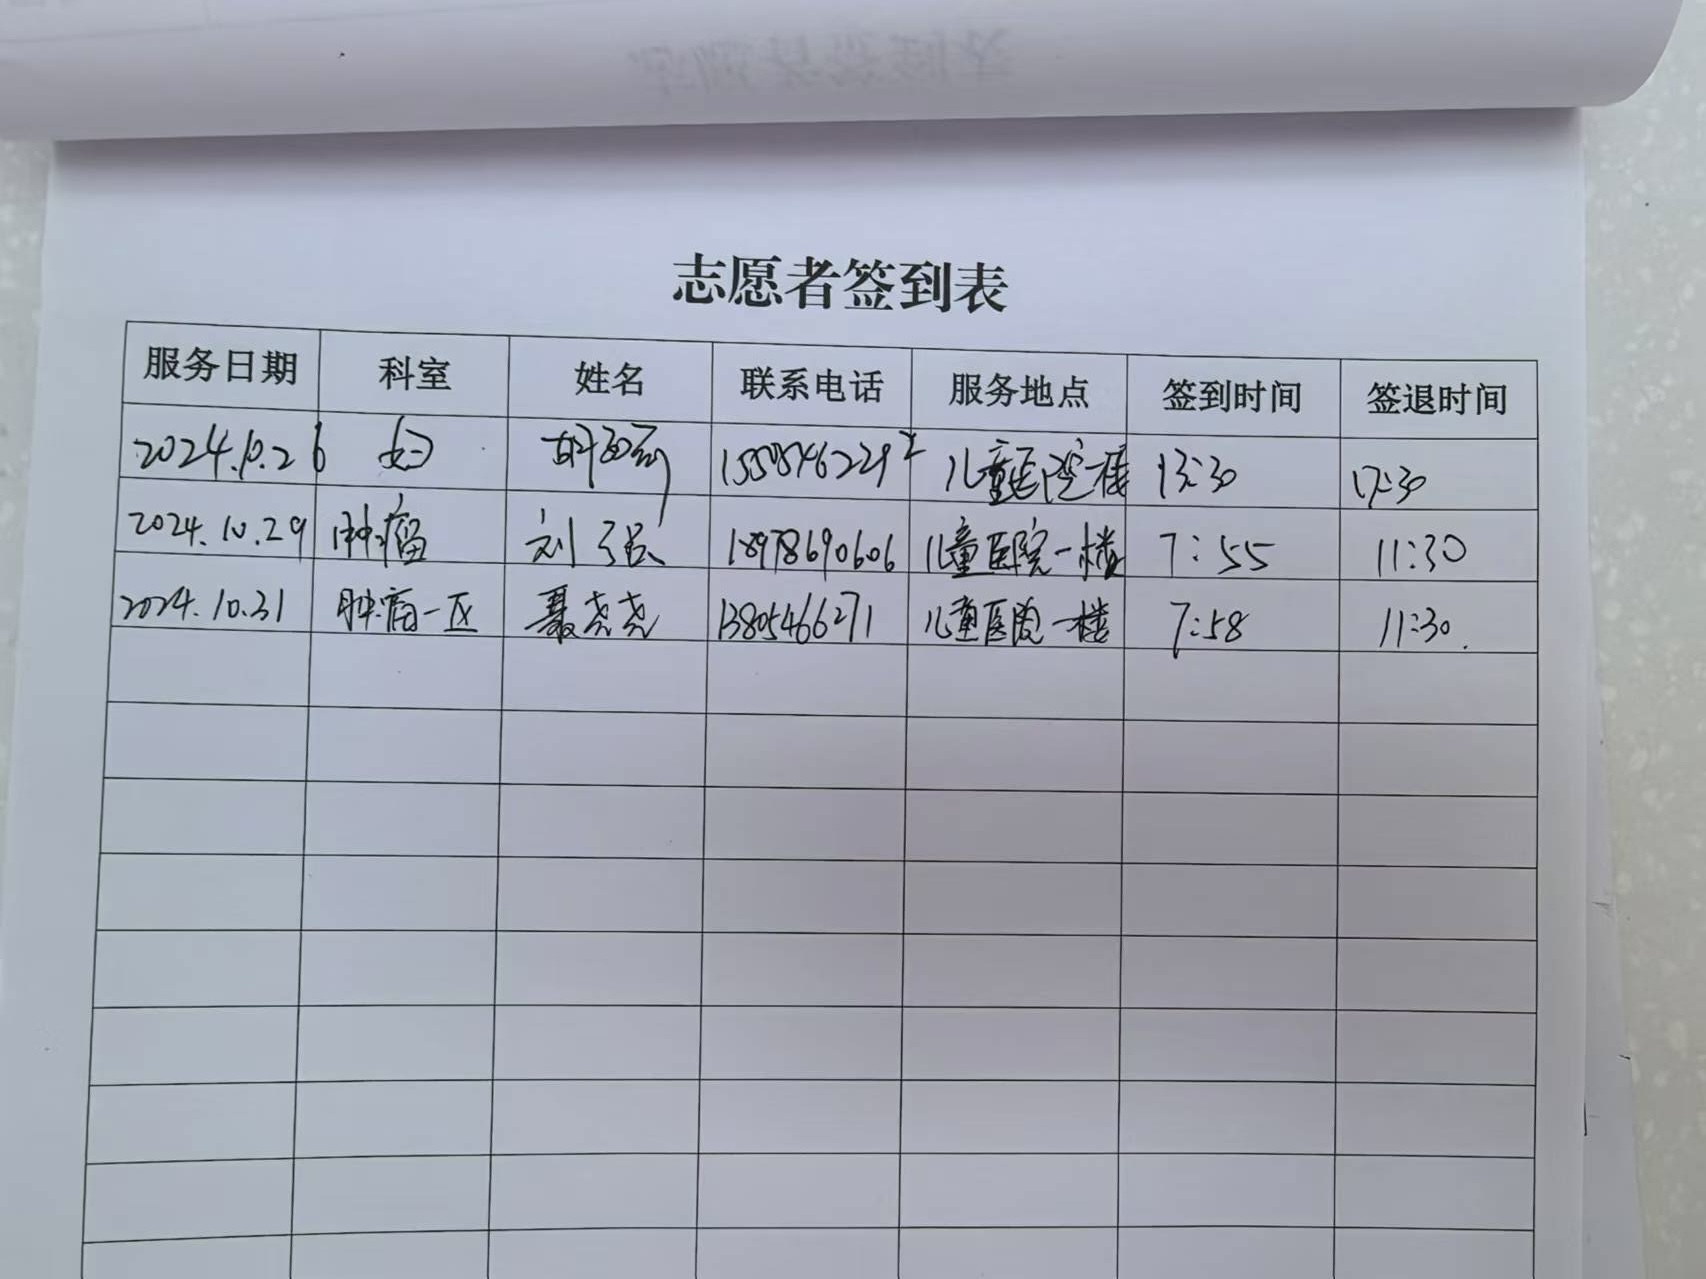 志愿者签到表
服务日期 科室 姓名 联系电话 服务地点 签到时间 签退时间
2024.10.26 妇 胡 儿童医院一楼 13:30 17:30
2024.10.29 肿瘤 刘强 18978690606 儿童医院一楼 7:55 11:30
2024.10.31 肿瘤一区 聂尧尧 13805466271 儿童医院一楼 7:58 11:30.